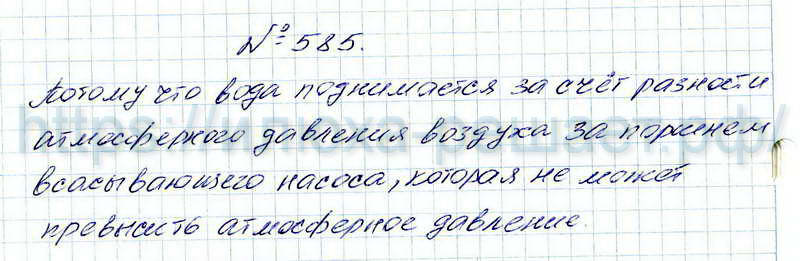 №585.
Потому что вода поднимается за счёт разности
атмосферного давления воздуха за поршнем
всасывающего насоса, которая не может
превысить атмосферное давление.